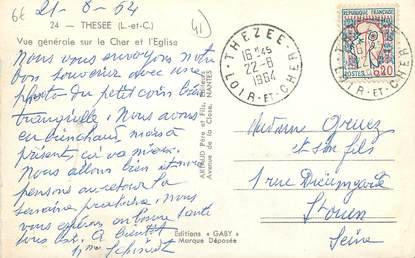 6t
21-8-64
41
24 - THESEE (L.-et-C.)
Vue générale sur le Cher et l'Eglise
Nous vous envoyons notre
bon souvenir avec une
photo du petit coin bien
tranquille. Nous avons
eu bien chaud, mais à
présent, ça va mieux.
Nous allons bien et nous
pensons au retour la
semaine prochaine, nous
vous espérons en bonne santé
vous tous. A bientôt
Mme
ARTAUD Père et Fils, Editeurs
Avenue de la Close, NANTES
Editions « GABY »
Marque Déposée
THEZEE
16H45
22-8
1964
LOIR-ET-CHER
REPUBLIQUE FRANÇAISE
POSTES
0,20
Madame Gruez
et son fils
1 rue
St Ouen
Seine